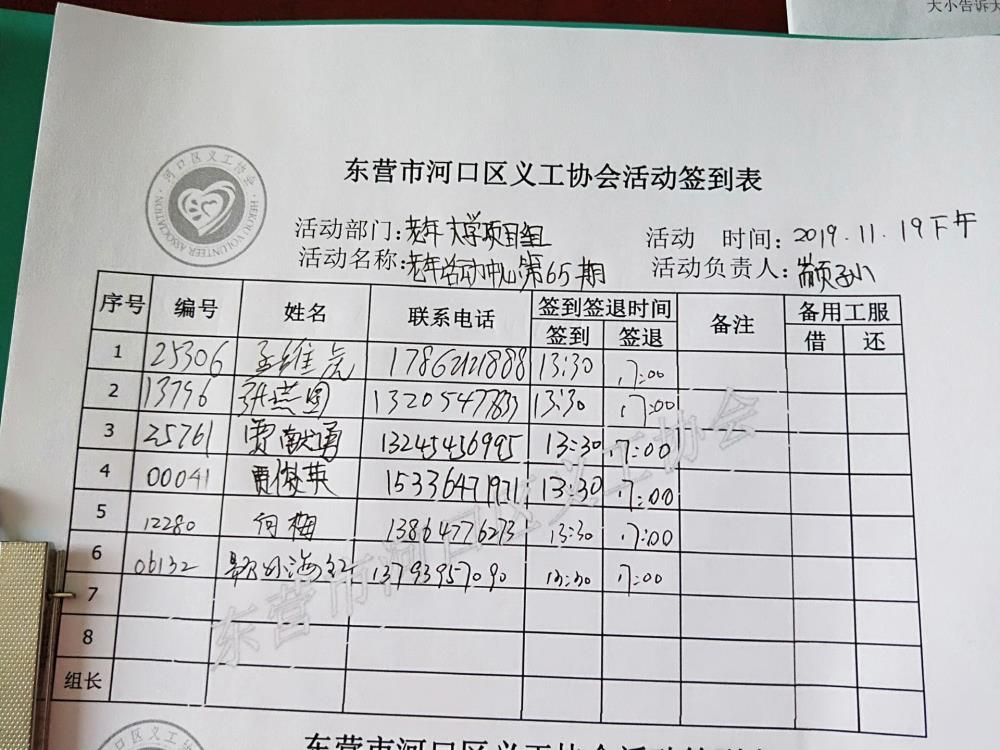 大小告诉大
河口区义工协会
HEKOU VOLUNTEER ASSOCIATION
东营市河口区义工协会活动签到表
活动部门:老年大学项目组 活动 时间: 2019.11.19下午
活动名称:老年活动中心第65期 活动负责人:
序号 编号 姓名 联系电话 签到签退时间 备注 备用工服
签到 签退 借 还
1 25306 孟维虎 17862121888 13:30 17:00
2 13796 张燕 13:30 17:00
3 25761 贾献勇 13245456995 13:30 17:00
4 00041 贾俊英 15336471971 13:30 17:00
5 12280 何梅 13864776273 13:30 17:00
6 06132 海红 13793957090 13:30 17:00
7
8
组长
东营市河口区义工协会
河口区义工协会
东营市河口区义工协会活动签到表